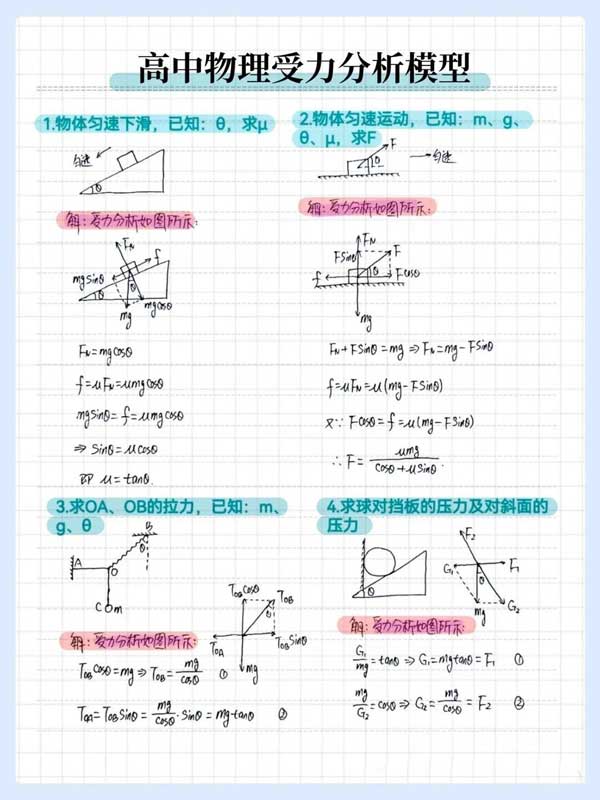 高中物理受力分析模型
1.物体匀速下滑，已知：θ，求μ
匀速
θ
解：受力分析如图所示：
F_N
f
mgsinθ
θ
θ
mg
mgcosθ
F_N=mgcosθ
f=μF_N=μmgcosθ
mgsinθ=f=μmgcosθ
⇒ sinθ=μcosθ
即 μ=tanθ
2.物体匀速运动，已知：m、g、
θ、μ，求F
F
θ
匀速
解：受力分析如图所示：
F_N
Fsinθ
F
f
θ
Fcosθ
mg
F_N+Fsinθ=mg⇒F_N=mg-Fsinθ
f=μF_N=μ(mg-Fsinθ)
又∵ Fcosθ=f=μ(mg-Fsinθ)
∴ F= μmg/(cosθ+μsinθ)
3.求OA、OB的拉力，已知：m、
g、θ
B
θ
A
O
C
m
T_OBcosθ
T_OB
θ
T_OA
T_OBsinθ
mg
解：受力分析如图所示：
T_OBcosθ=mg⇒T_OB= mg/cosθ ①
T_OA=T_OBsinθ= mg/cosθ·sinθ=mg·tanθ ②
4.求球对挡板的压力及对斜面的
压力
θ
F_2
G_1
F_1
θ
mg
G_2
解：受力分析如图所示：
G_1/mg=tanθ⇒G_1=mgtanθ=F_1 ①
mg/G_2=cosθ⇒G_2= mg/cosθ=F_2 ②